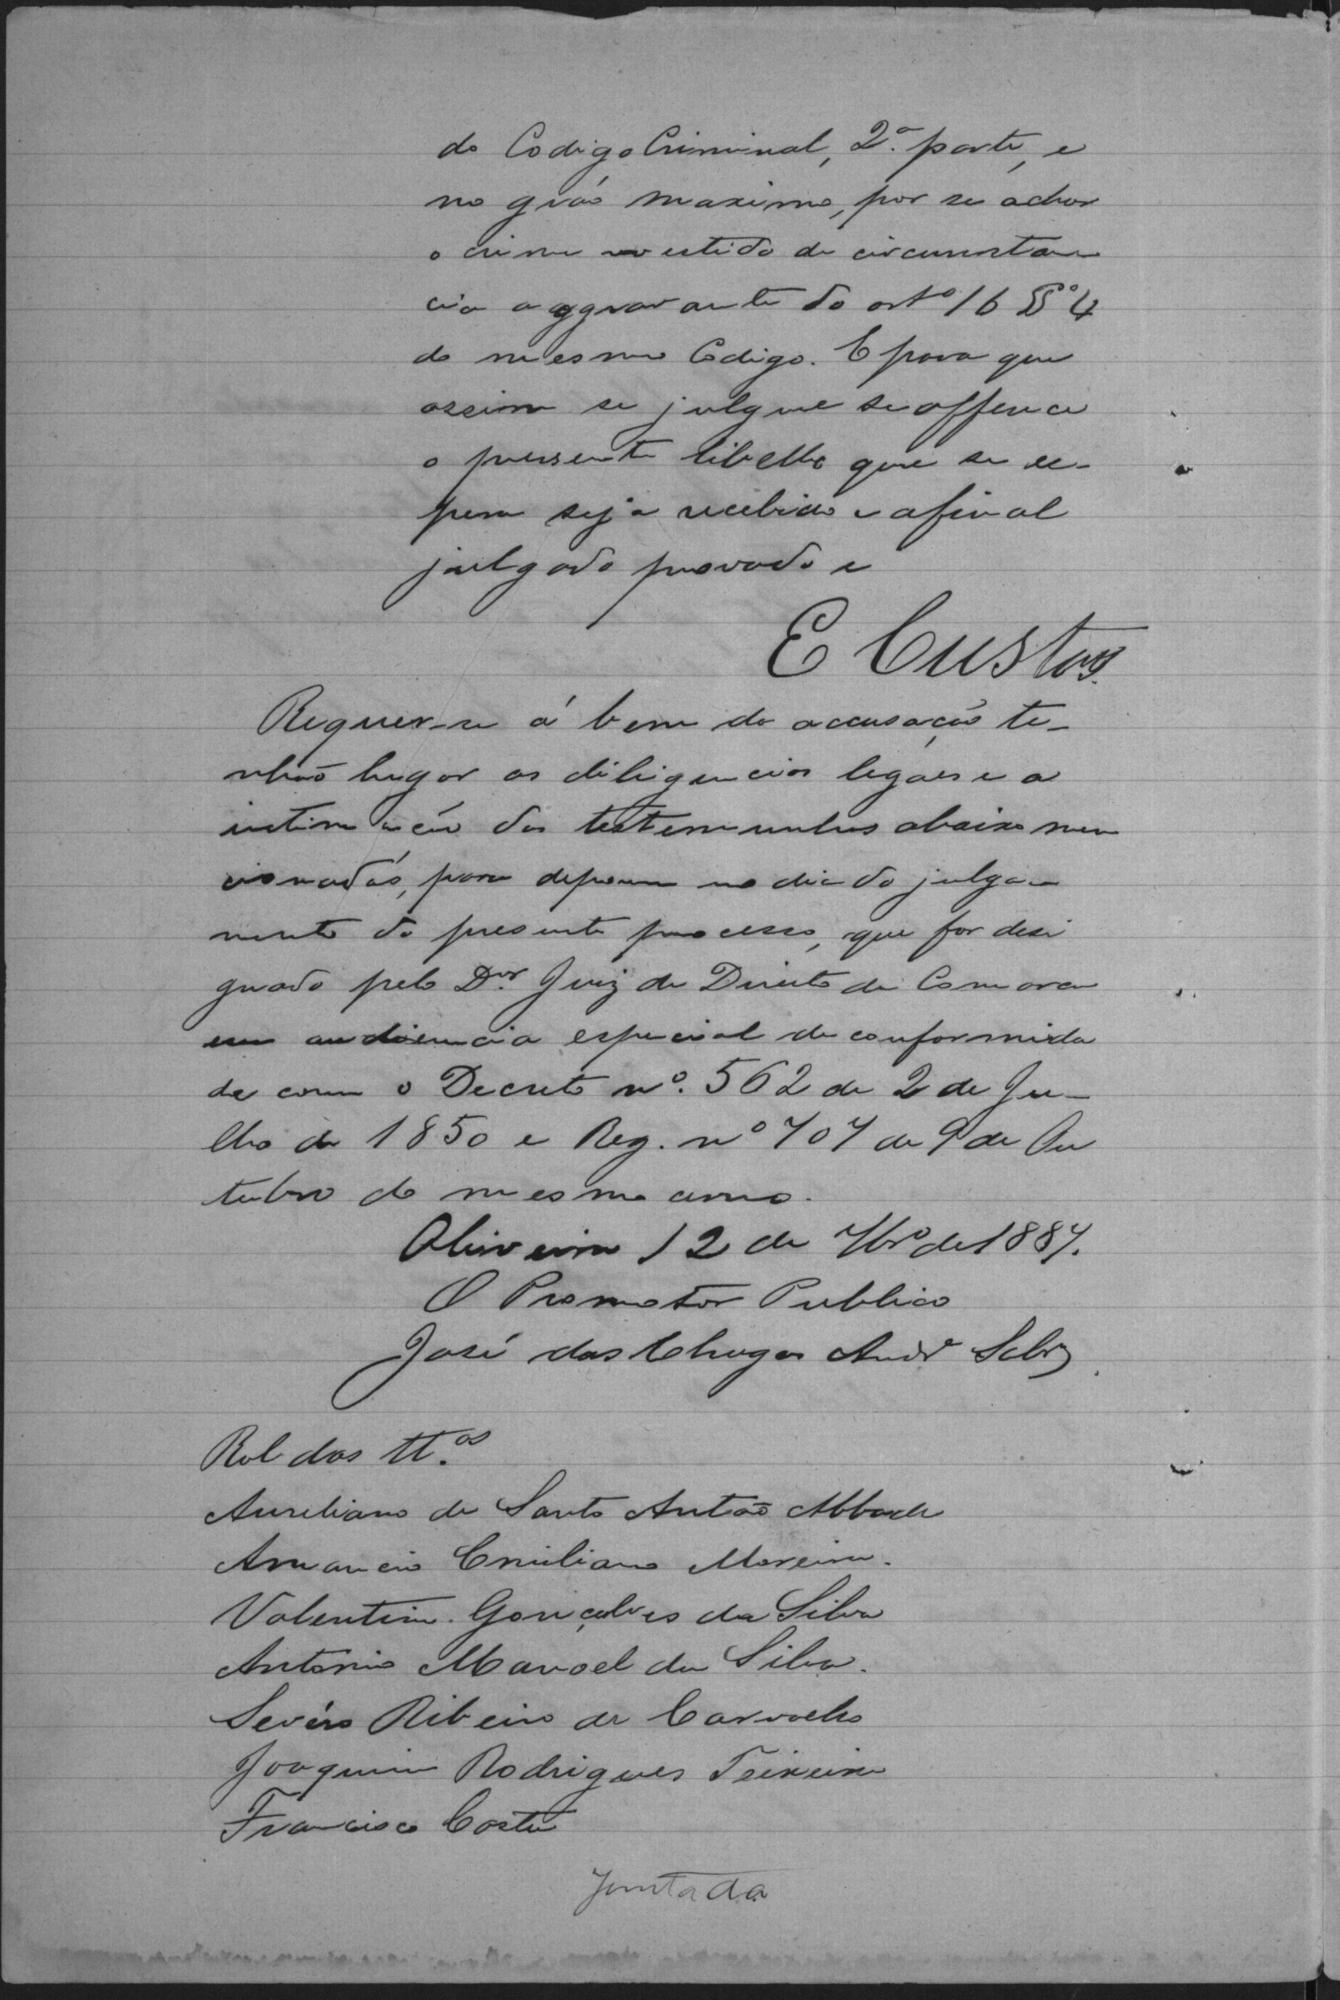 do Codigo Criminal, 2ª parte, e
no gráo maximo, por se achar
o crime revestido de circumstan
cia aggravante do artº 16 § 4
do mesmo Codigo. E para que
assim se julgue se offerece
o presente libello que se es-
pera seja recebido e afinal
julgado provado e
E Custas.
Requer-se á bem da accusação te-
nhão lugar as diligencias legaes e a
intimação das testemunhas abaixo men
cionadas, para deporem no dia do julga-
mento do presente processo, que for desi
gnado pelo Dor Juiz de Direito da Comarca
em audiencia especial de conformida
de com o Decreto nº. 562 de 2 de Ju-
lho de 1850 e Reg. nº 707 de 9 de Ou
tubro do mesmo anno.
Oliveira 12 de 7brº de 1887.
O Promotor Publico
José das Chagas Andre
Rol das ttas
Aureliano de Santo Antão Abbade
Amancio Emiliano Moreira.
Valentim Gonçalves da Silva
Antonio Manoel da Silva.
Sevéro Ribeiro de Carvalho
Joaquim Rodrigues Teixeira
Francisco Costa
Juntada